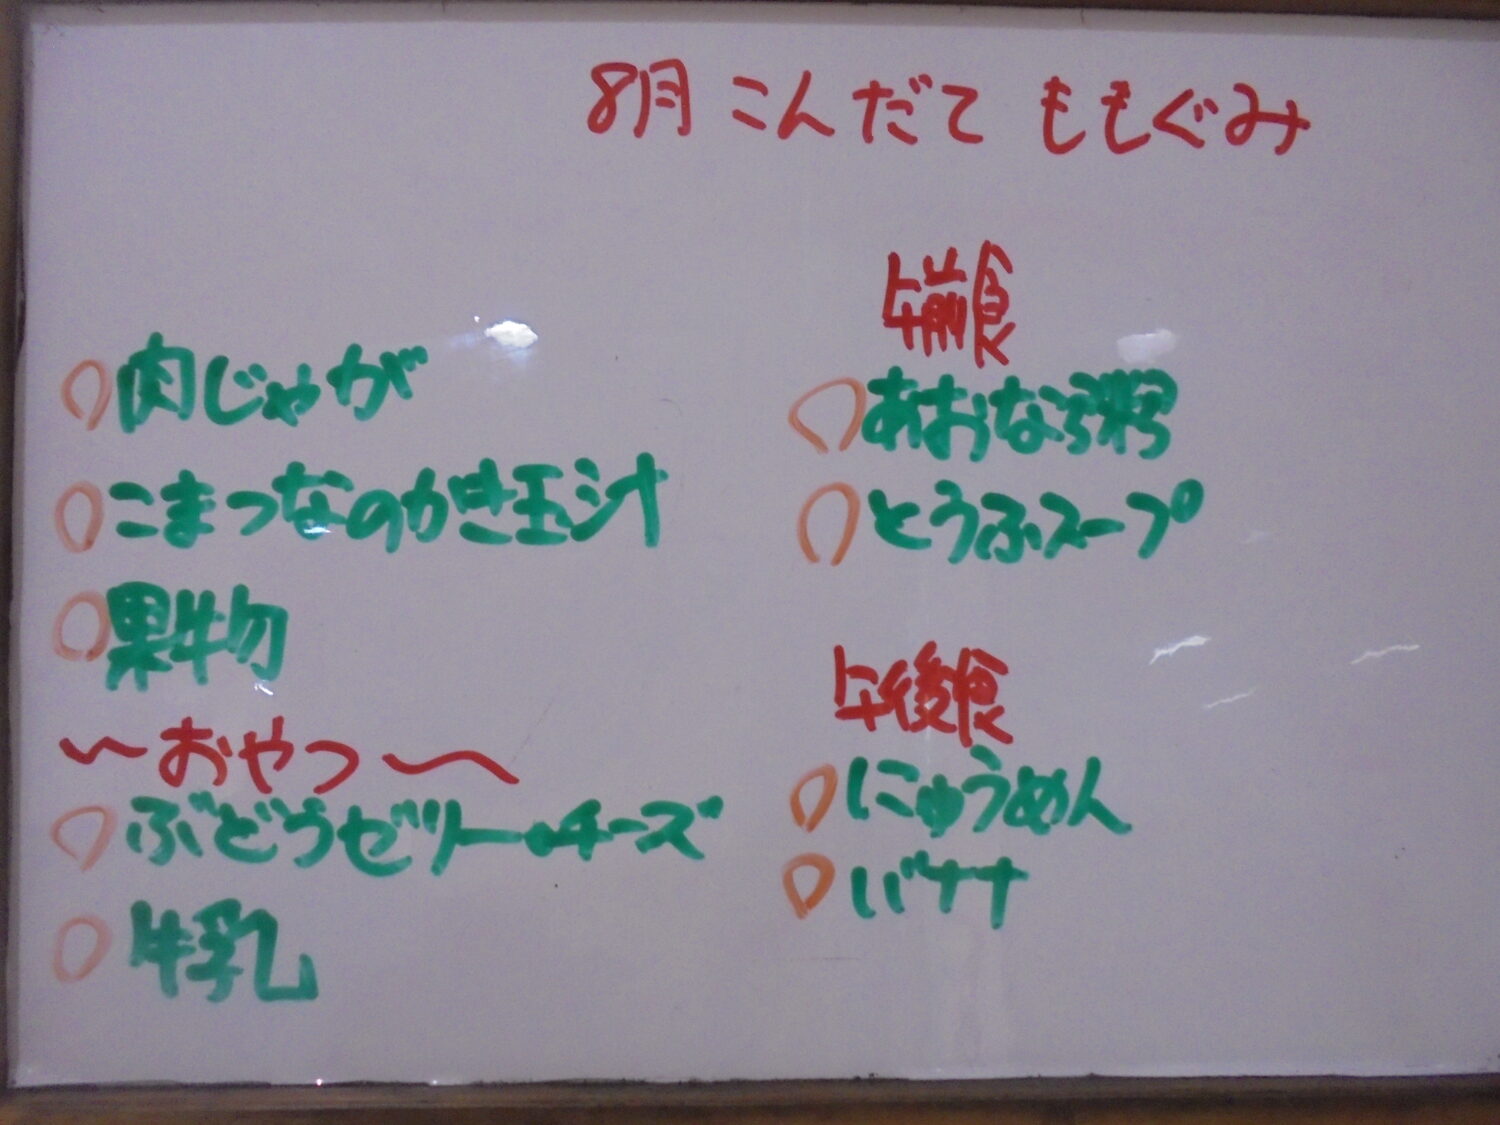 8月 こんだて ももぐみ
○肉じゃが
○こまつなのかき玉汁
○果物
〜おやつ〜
○ぶどうゼリー・チーズ
○牛乳
午前食
○あおな粥
○とうふスープ
午後食
○にゅうめん
○バナナ